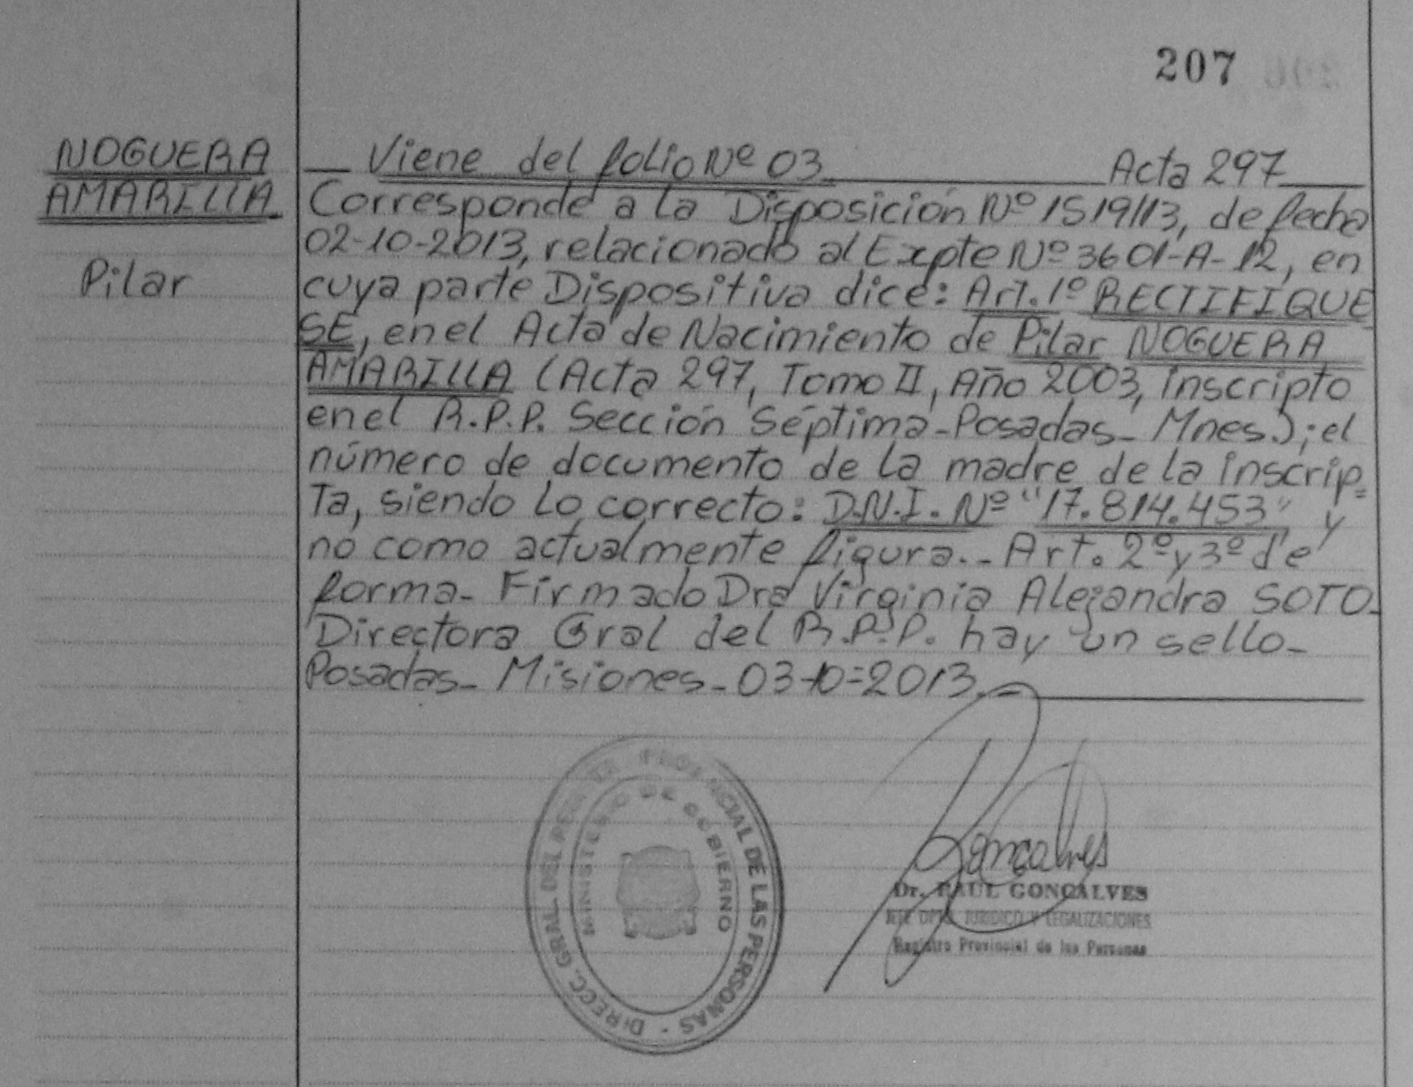 207
NOGUERA
AMARILLA
Pilar
Viene del folio Nº 03 Acta 297
Corresponde a la Disposición Nº 1519/13, de fecha
02-10-2013, relacionado al Expte Nº 3601-A-12, en
cuya parte Dispositiva dice: Art. 1º RECTIFIQUE
SE, en el Acta de Nacimiento de Pilar NOGUERA
AMARILLA (Acta 297, Tomo II, Año 2003, inscripto
en el R.P.P. Sección Séptima-Posadas-Mnes.); el
número de documento de la madre de la inscrip=
Ta, siendo lo correcto: D.N.I. Nº "17.814.453" y
no como actualmente figura.- Art. 2º y 3º de
forma- Firmado Dra Virginia Alejandra SOTO-
Directora Gral del R.P.P. hay un sello-
Posadas- Misiones- 03-10-2013.-
DIRECC. GRAL. DEL REGISTRO PROVINCIAL DE LAS PERSONAS -
MINISTERIO DE GOBIERNO
Gonçalves
Dr. RAUL GONÇALVES
JEFE DPTO. JURIDICO Y LEGALIZACIONES
Registro Provincial de las Personas